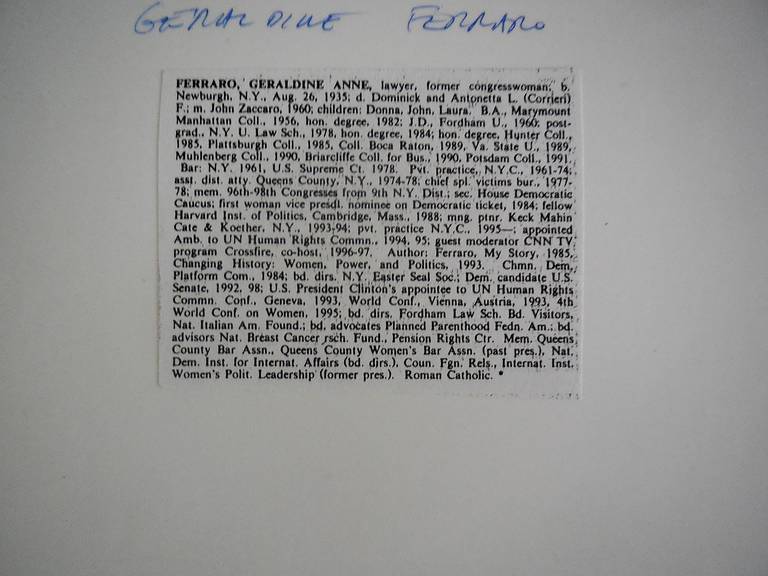 GERALDINE FERRARO
FERRARO, GERALDINE ANNE, lawyer, former congresswoman; b.
Newburgh, N.Y., Aug. 26, 1935; d. Dominick and Antonetta L. (Corrieri)
F.; m. John Zaccaro, 1960; children: Donna, John, Laura. B.A., Marymount
Manhattan Coll., 1956, hon. degree, 1982; J.D., Fordham U., 1960; post-
grad., N.Y. U. Law Sch., 1978, hon. degree, 1984; hon. degree, Hunter Coll.,
1985, Plattsburgh Coll., 1985, Coll. Boca Raton, 1989, Va. State U., 1989,
Muhlenberg Coll., 1990, Briarcliffe Coll. for Bus., 1990, Potsdam Coll., 1991.
Bar: N.Y. 1961, U.S. Supreme Ct. 1978. Pvt. practice, N.Y.C., 1961-74;
asst. dist. atty. Queens County, N.Y., 1974-78; chief spl. victims bur., 1977-
78; mem. 96th-98th Congresses from 9th N.Y. Dist.; sec. House Democratic
Caucus; first woman vice presdl. nominee on Democratic ticket, 1984; fellow
Harvard Inst. of Politics, Cambridge, Mass., 1988; mng. ptnr. Keck Mahin
Cate & Koether, N.Y., 1993-94; pvt. practice N.Y.C., 1995—; appointed
Amb. to UN Human Rights Commn., 1994, 95; guest moderator CNN TV
program Crossfire, co-host, 1996-97. Author: Ferraro, My Story, 1985,
Changing History: Women, Power, and Politics, 1993. Chmn. Dem.
Platform Com., 1984; bd. dirs. N.Y. Easter Seal Soc.; Dem. candidate U.S.
Senate, 1992, 98; U.S. President Clinton's appointee to UN Human Rights
Commn. Conf., Geneva, 1993, World Conf., Vienna, Austria, 1993, 4th
World Conf. on Women, 1995; bd. dirs. Fordham Law Sch. Bd. Visitors,
Nat. Italian Am. Found.; bd. advocates Planned Parenthood Fedn. Am.; bd.
advisors Nat. Breast Cancer rsch. Fund., Pension Rights Ctr. Mem. Queens
County Bar Assn., Queens County Women's Bar Assn. (past pres.), Nat.
Dem. Inst. for Internat. Affairs (bd. dirs.), Coun. Fgn. Rels., Internat. Inst.
Women's Polit. Leadership (former pres.). Roman Catholic. *